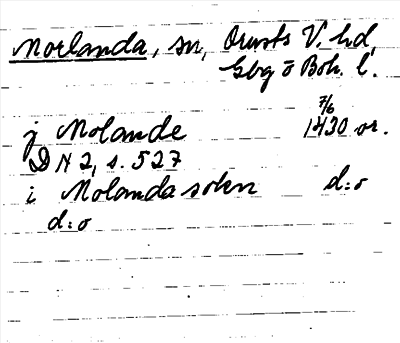 Morlanda, sn, Orusts V. hd,
Gbg o Boh. l.
7/6
j Molande 1430 or.
DN 2, s. 527
i Molanda sokn d:o
d:o